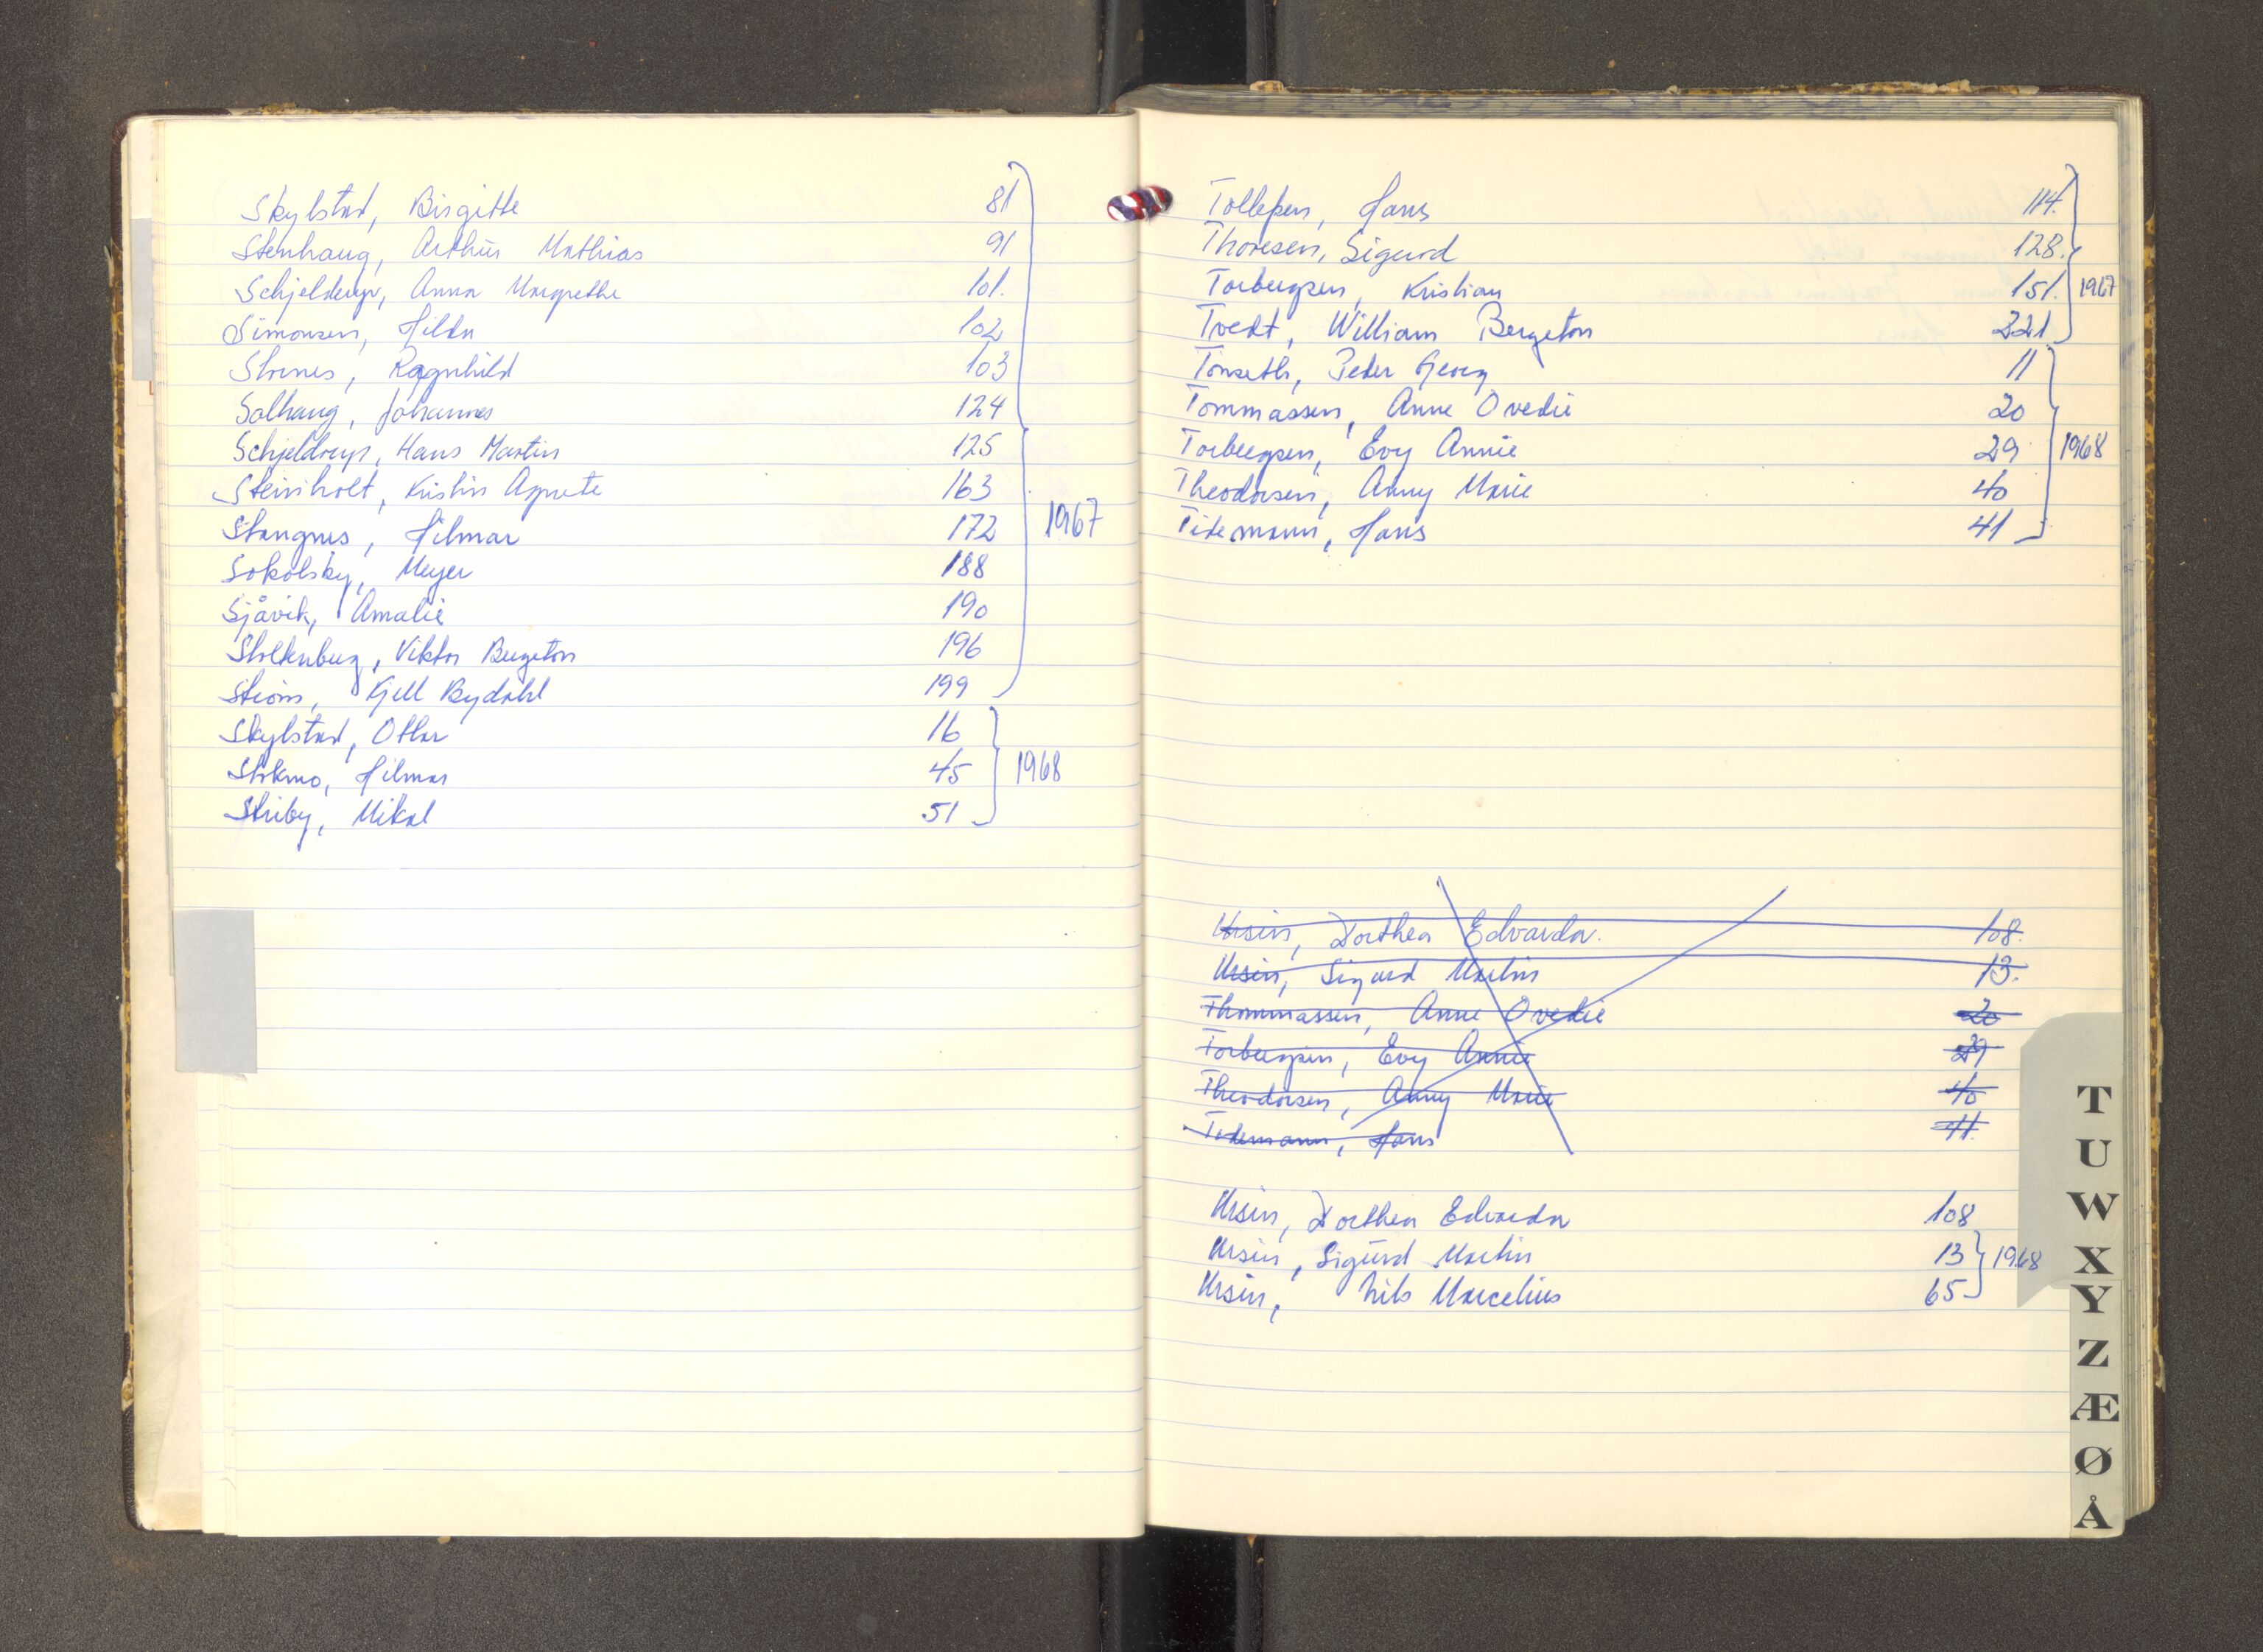 Skylstad, Birgitte 81
Stenhaug, Arthur Mathias 91
Schjelderup, Anna Margrethe 101.
Simonsen, Hilda 102
Stornes, Ragnhild 103
Solhaug, Johannes 124
Schjeldrup, Hans Martin 125
Steinholt, Kristin Agnete 163
Stangnes, Hilmar 172
1967
Sokolsky, Meyer 188
Sjåvik, Amalie 190
Stoltenberg, Viktor Bergeton 196
Strøm, Kjell Rydahl 199
Skylstad, Ottar 16
Stokmo, Hilmar 45
1968
Striby, Mikal 51
Tollefsen, Hans 114.
Thoresen, Sigurd 128.
Torbergsen, Kristian 151. 1967
Tvedt, William Bergeton 221
Tønseth, Peder Georg 11
Tommassen, Anne Ovedie 20
Torbergsen, Evy Annie 29 1968
Theodorsen, Anny Marie 40
Tidemann, Hans 41
Ursin, Dorthea Edvarda. 108.
Ursin, Sigurd Martin 13.
Thommassen, Anne Ovedie 20
Torbergsen, Evy Annie 29
Theodorsen, Anny Marie 40
Tidemann, Hans 41.
Ursin, Dorthea Edvarda 108
Ursin, Sigurd Martin 13 1968
Ursin, Nils Marcelius 65
T
U
W
X
Y
Z
Æ
Ø
Å